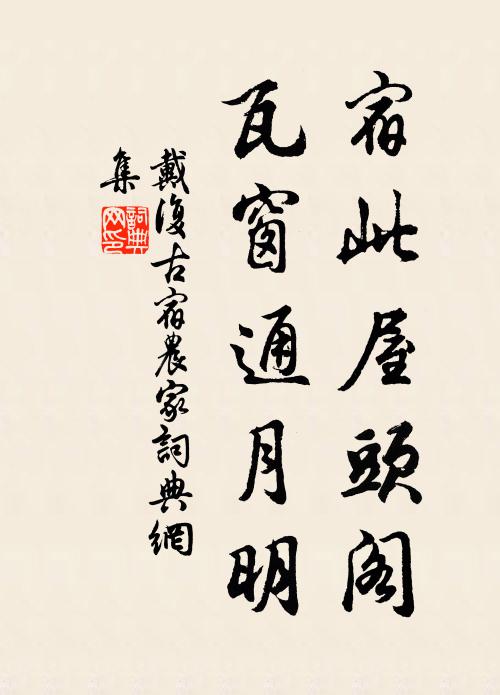 宿此屋頭閣
瓦窗通月明
戴復古宿農家詞典網
集
詞典
网印